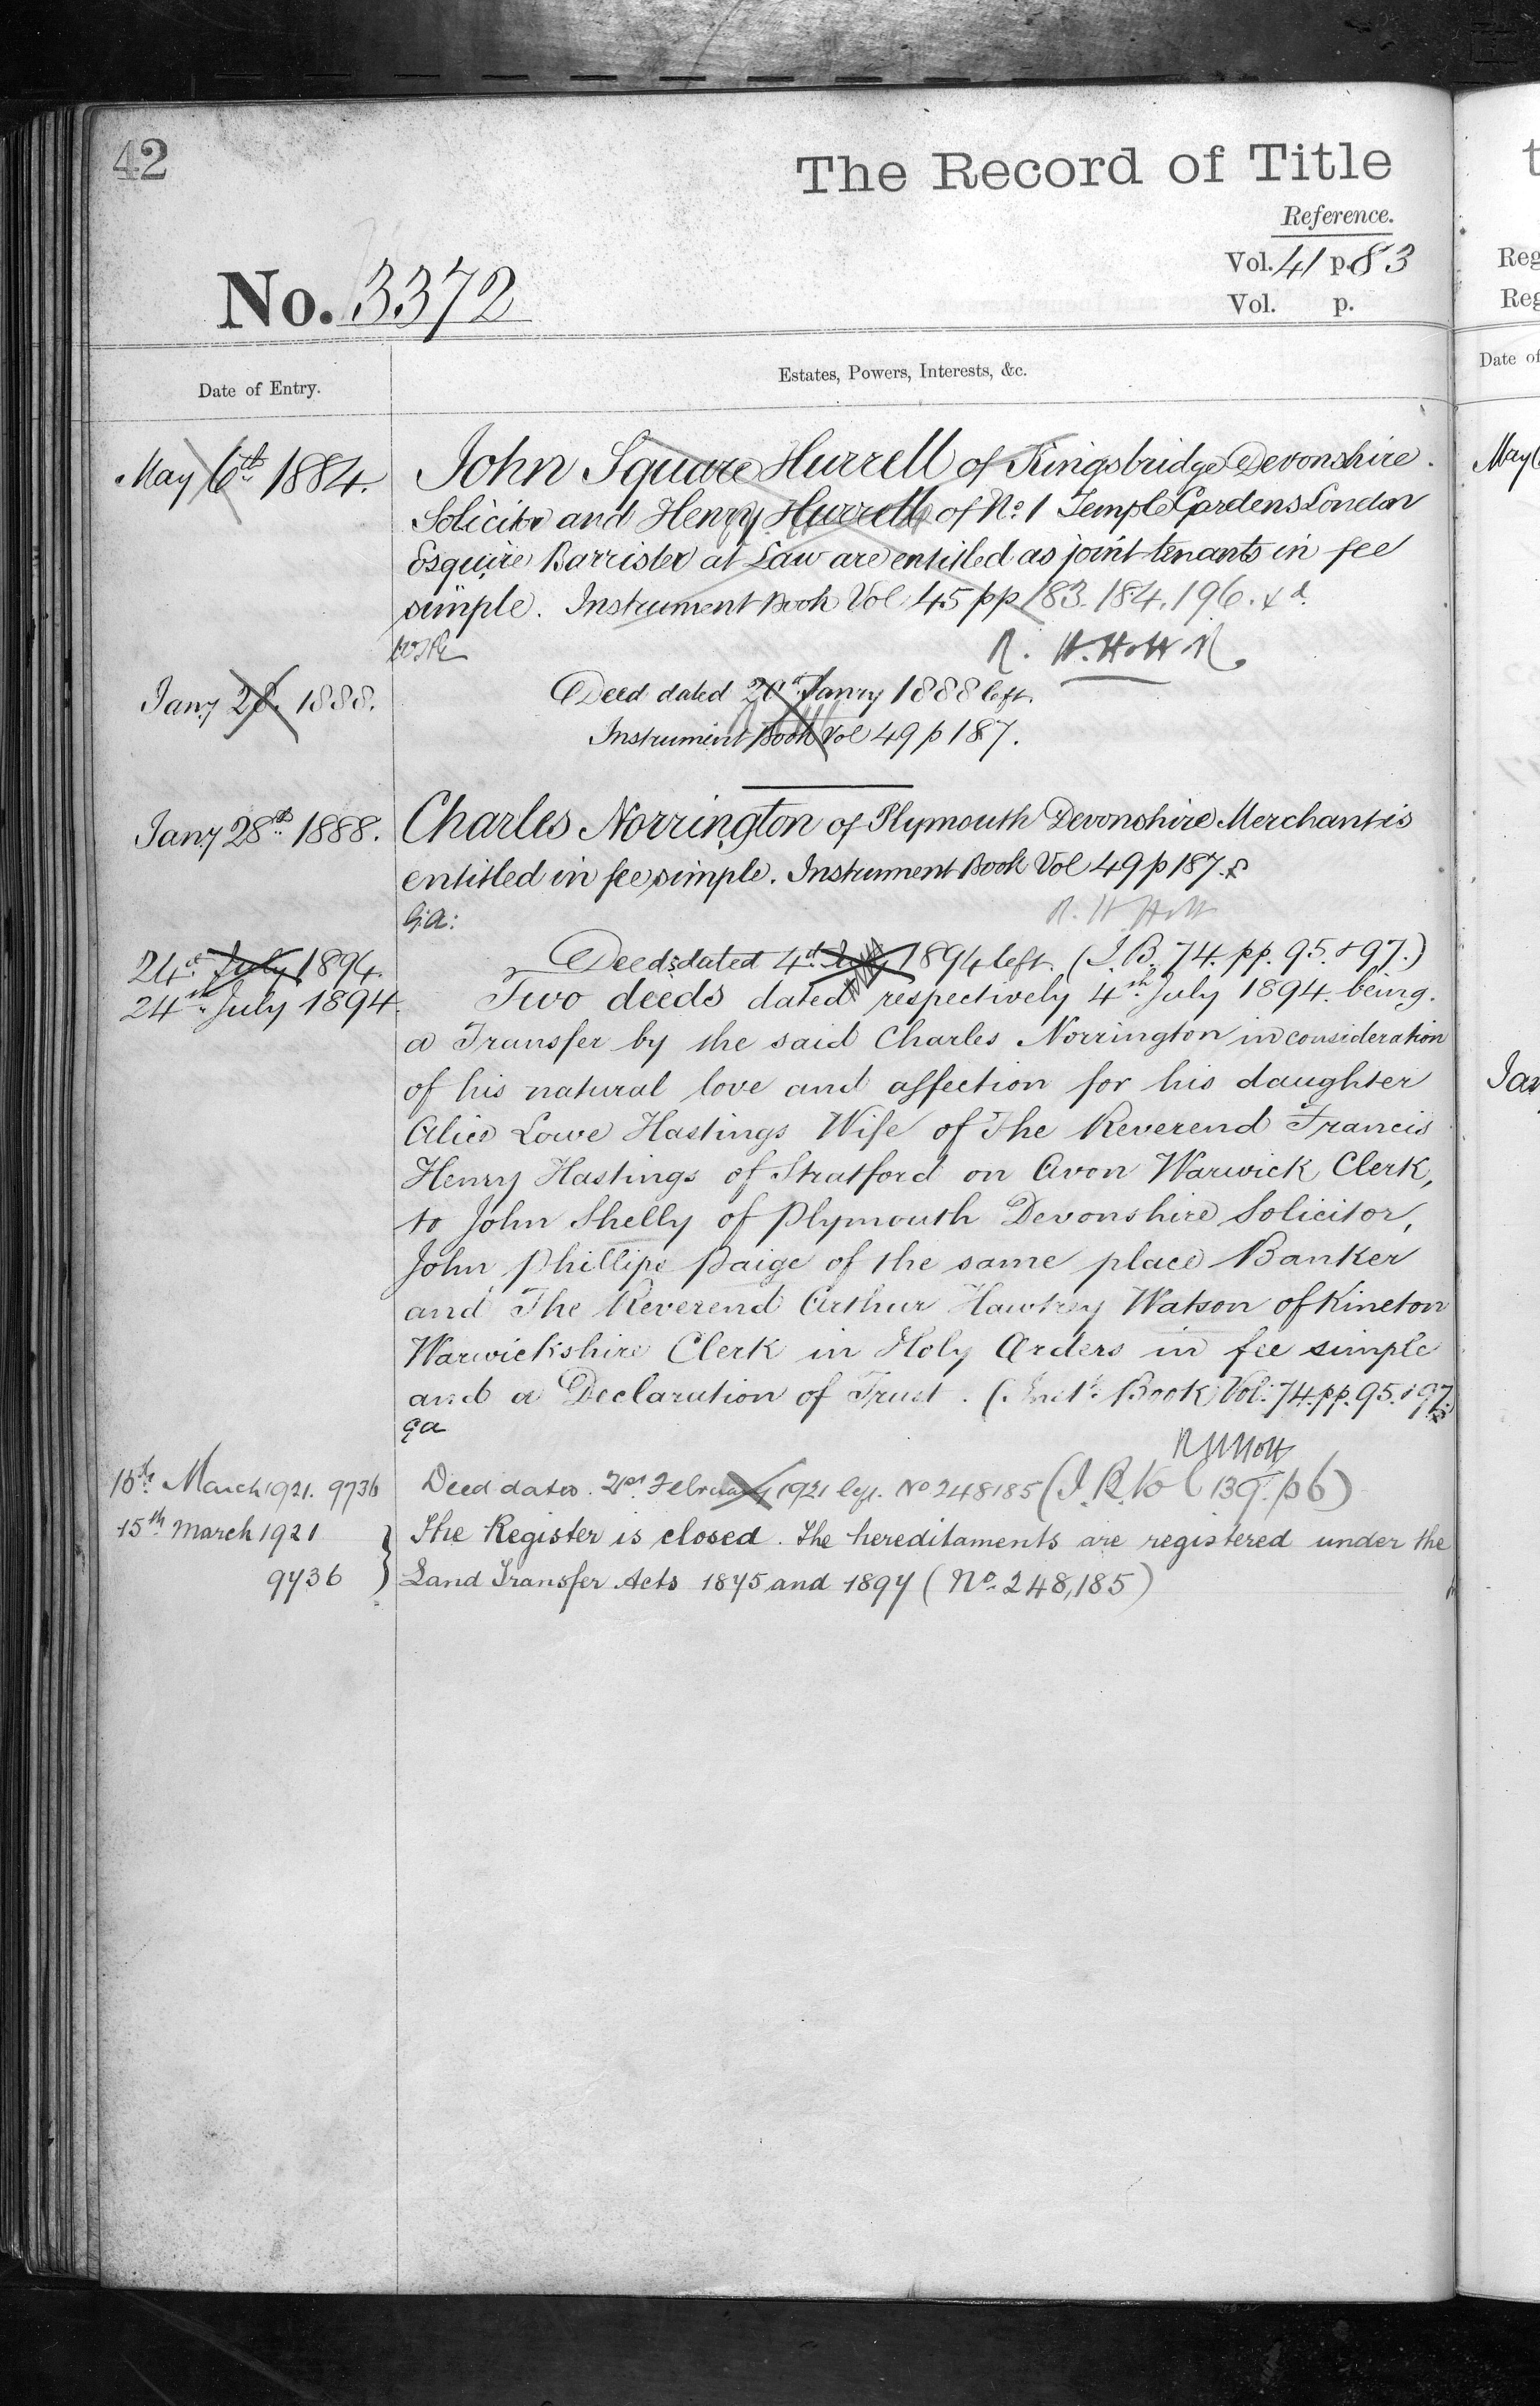 42
The Record of Title
Reference.
Vol. 41 p. 83
No. 3372
Vol. p.
Date of Entry.
Estates, Powers, Interests, &c.
May 6th 1884.
John Square Hurrell of Kingsbridge Devonshire.
Solicitor and Henry Hurrell of No. 1 Temple Gardens London
Esquire Barrister at Law are entitled as joint tenants in fee
simple. Instrument Book Vol 45 pp 183. 184. 196.
R. H. Holt R.
Jany 28. 1888.
Deed dated 20th Janry 1888 left.
Instrument Book Vol 49 p 187.
Jany 28th 1888.
Charles Norrington of Plymouth Devonshire Merchant is
entitled in fee simple. Instrument Book Vol 49 p 187.
G.A:
R. H. Holt
24th July 1894.
Deeds dated 4th July 1894 left (I.B. 74. pp. 95. & 97.)
24th July 1894.
Two deeds dated respectively 4th July 1894. being.
a Transfer by the said Charles Norrington in consideration
of his natural love and affection for his daughter
Alice Lowe Hastings Wife of The Reverend Francis
Henry Hastings of Stratford on Avon Warwick Clerk,
to John Shelly of Plymouth Devonshire Solicitor,
John Phillips Paige of the same place Banker
and The Reverend Arthur Hawtrey Watson of Kineton
Warwickshire Clerk in Holy Orders in fee simple
and a Declaration of Trust. (Inst. Book Vol: 74. pp. 95. & 97.)
GA
RHHolt
15th March 1921. 9736
Deed dated. 21st February 1921 left. No 248185 (I.B. Vol 139. p 6)
15th March 1921
The Register is closed. The hereditaments are registered under the
9736
Land Transfer Acts 1875 and 1897 (No. 248,185)
t
Reg
Reg
Date of
May 6
Jan